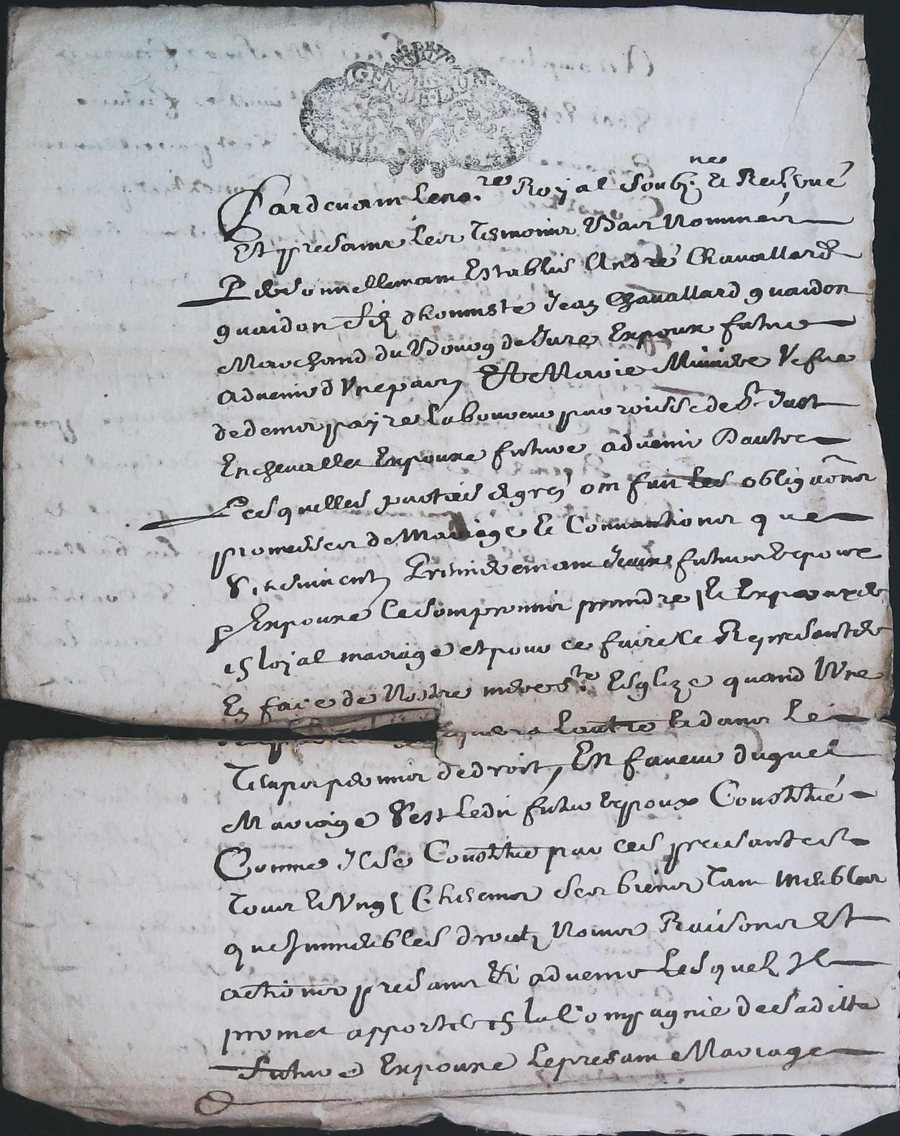 Pardevant le no.re Royal soub.né et Reservé
Et presants les tesmoins bas nommés
Personnellemant Establis André Chavallard
guaidon fis d'honneste Jean Chavallard guaidon
Marchand du Bourg de Jure Expoux futur
advenir d'Une part, Et Marie Miniere Vefve
de demor payre laboureur parroisse de St. Just
En chevallet Expouxe future advenir D'autre
Lesquelles parties de gré ont fait les obligaõns
promesses de Mariage et Convantions que
S'ensuivent, Premieremant iceux futurs Expoux
Expouxe se sont promis prendre et Expouzer
En loyal mariage et pour ce faire se Represanter
En face de Nostre mere ste Esglize quand L'Une
l'autre et dans le
Temps permis de droit, En faveur duquel
Mariage S'est ledit futur Expoux Constitué
Comme Il se Constitue par ces presantes
Tous et Ung Chescuns ses biens Tant Meubles
que Immeubles droitz Noms Raisons Et
actions presants Et advenir Lesquelz Il
promet apporter En la Compagnie de sa ditte
future Expouxe Le presant Mariage